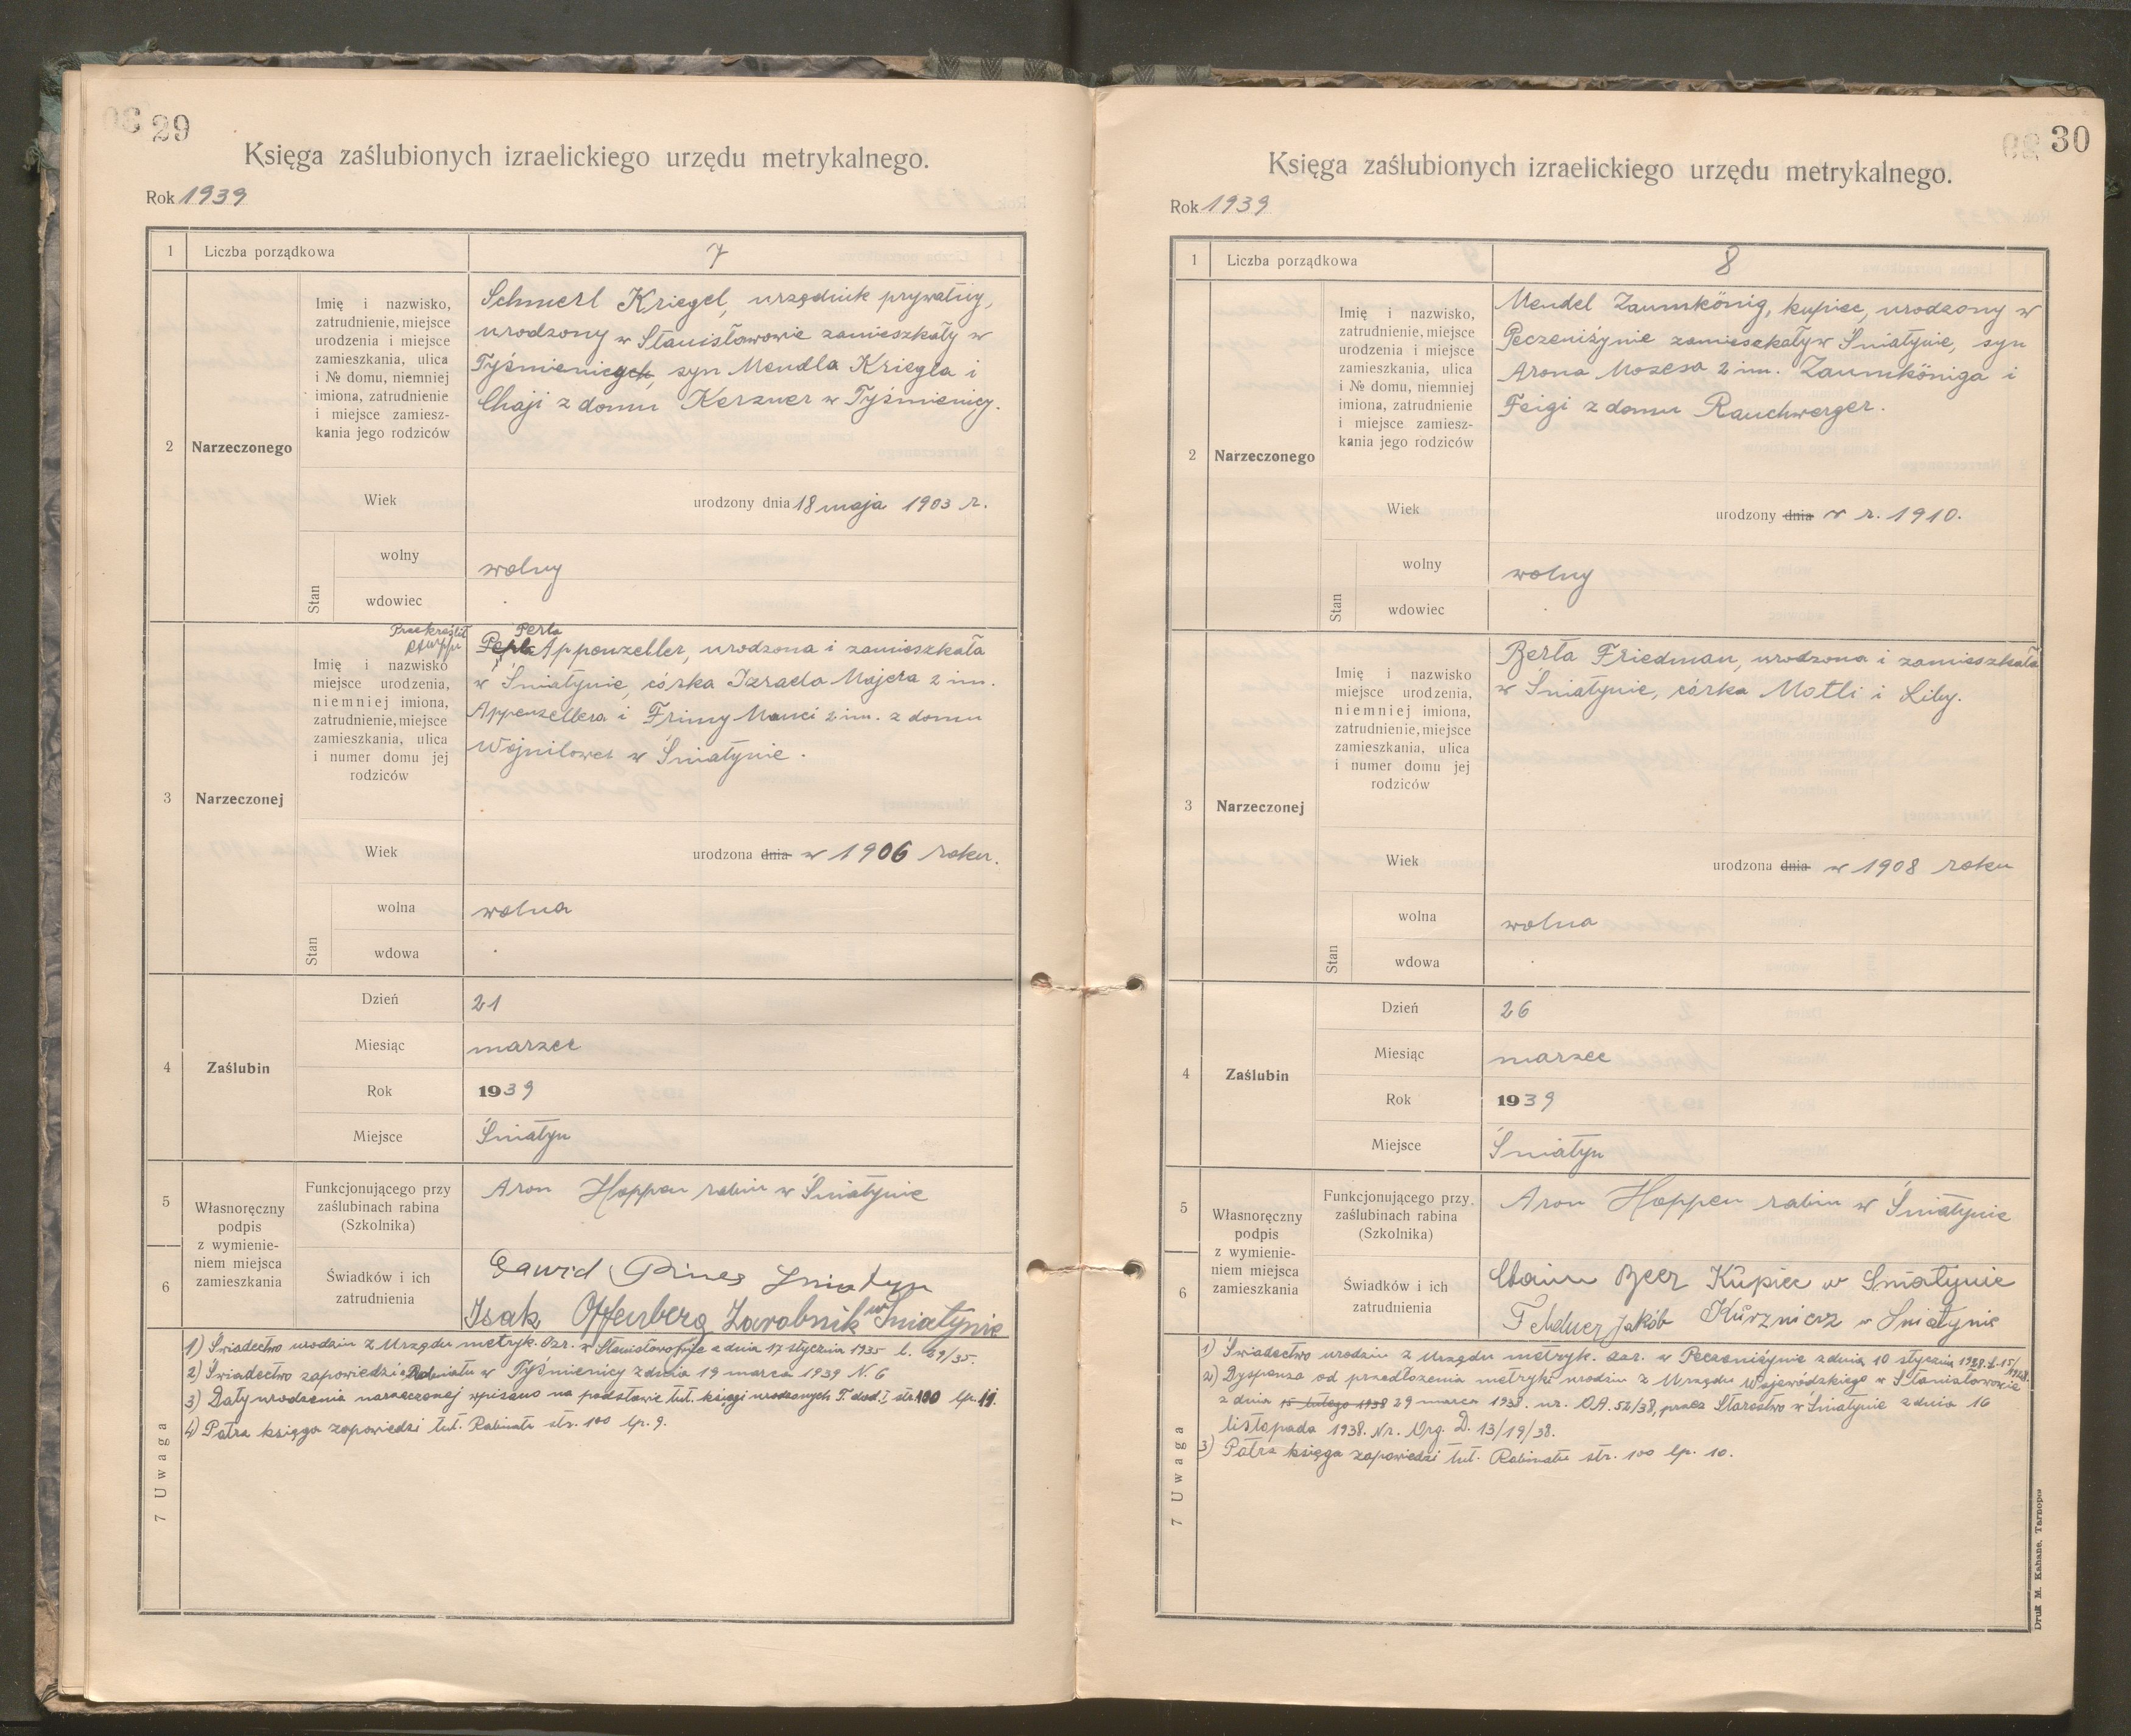 29
Księga zaślubionych izraelickiego urzędu metrykalnego.
Rok 1939
1 Liczba porządkowa 7
2 Narzeczonego
Imię i nazwisko,
zatrudnienie, miejsce
urodzenia i miejsce
zamieszkania, ulica
i № domu, niemniej
imiona, zatrudnienie
i miejsce zamiesz-
kania jego rodziców
Schmerl Kriegel, urzędnik prywatny,
urodzony w Stanisławowie zamieszkały w
Tyśmienicy, syn Mendla Kriegla i
Chaji z domu Kerzner w Tyśmienicy.
Wiek urodzony dnia 18 maja 1903 r.
Stan
wolny wolny
wdowiec
3 Narzeczonej
Imię i nazwisko
miejsce urodzenia,
niemniej imiona,
zatrudnienie, miejsce
zamieszkania, ulica
i numer domu jej
rodziców
Przekreślił
Perla
Appenzeller, urodzona i zamieszkała
w Śniatynie, córka Izraela Majera 2 im.
Appenzellera i Frimy Manci 2 im. z domu
Wojnilower w Śniatynie.
Wiek urodzona dnia w 1906 roku.
Stan
wolna wolna
wdowa
4 Zaślubin
Dzień 21
Miesiąc marzec
Rok 1939
Miejsce Śniatyn
5
6
Własnoręczny
podpis
z wymienie-
niem miejsca
zamieszkania
Funkcjonującego przy
zaślubinach rabina
(Szkolnika)
Aron Hoppen rabin w Śniatynie
Świadków i ich
zatrudnienia
Dawid Pines Śniatyn
Isak Offenberg Zarobnik w Śniatynie
7 Uwaga
1) Świadectwo urodzin z Urzędu metryk. izr. w Stanisławowie z dnia 17 stycznia 1935 l. 69/35.
2) Świadectwo zapowiedzi z Rabinatu w Tyśmienicy z dnia 19 marca 1939 N. 6
3) Daty urodzenia narzeczonej wpisano na podstawie tut. księgi urodzonych T. dod. I str. 100 lp. 11.
4) Patrz księga zapowiedzi tut. Rabinatu str. 100 lp. 9.
30
Księga zaślubionych izraelickiego urzędu metrykalnego.
Rok 1939
1 Liczba porządkowa 8
2 Narzeczonego
Imię i nazwisko,
zatrudnienie, miejsce
urodzenia i miejsce
zamieszkania, ulica
i № domu, niemniej
imiona, zatrudnienie
i miejsce zamiesz-
kania jego rodziców
Mendel Zaumkönig, kupiec, urodzony w
Peczeniżynie zamieszkały w Śniatynie, syn
Arona Mozesa 2 im. Zaumköniga i
Feigi z domu Rauchwerger.
Wiek urodzony dnia w r. 1910.
Stan
wolny wolny
wdowiec
3 Narzeczonej
Imię i nazwisko
miejsce urodzenia,
niemniej imiona,
zatrudnienie, miejsce
zamieszkania, ulica
i numer domu jej
rodziców
Berta Friedman, urodzona i zamieszkała
w Śniatynie, córka Motli i Liby.
Wiek urodzona dnia w 1908 roku
Stan
wolna wolna
wdowa
4 Zaślubin
Dzień 26
Miesiąc marzec
Rok 1939
Miejsce Śniatyn
5
6
Własnoręczny
podpis
z wymienie-
niem miejsca
zamieszkania
Funkcjonującego przy
zaślubinach rabina
(Szkolnika)
Aron Hoppen rabin w Śniatynie
Świadków i ich
zatrudnienia
Chaim Beer Kupiec w Śniatynie
Jakób Kuśnierz w Śniatynie
7 Uwaga
1) Świadectwo urodzin z Urzędu metryk. izr. w Peczeniżynie z dnia 10 stycznia 1928. L. 15/1928.
2) Dyspenza od przedłożenia metryki urodzin z Urzędu Wojewódzkiego w Stanisławowie
z dnia 15 lutego 1938 29 marca 1938. nr. OA. 52/38, przez Starostwo w Śniatynie z dnia 16
listopada 1938. Nr. Org. D. 13/19/38.
3) Patrz księga zapowiedzi tut. Rabinatu str. 100 lp. 10.
Druk M. Kahane, Tarnopol